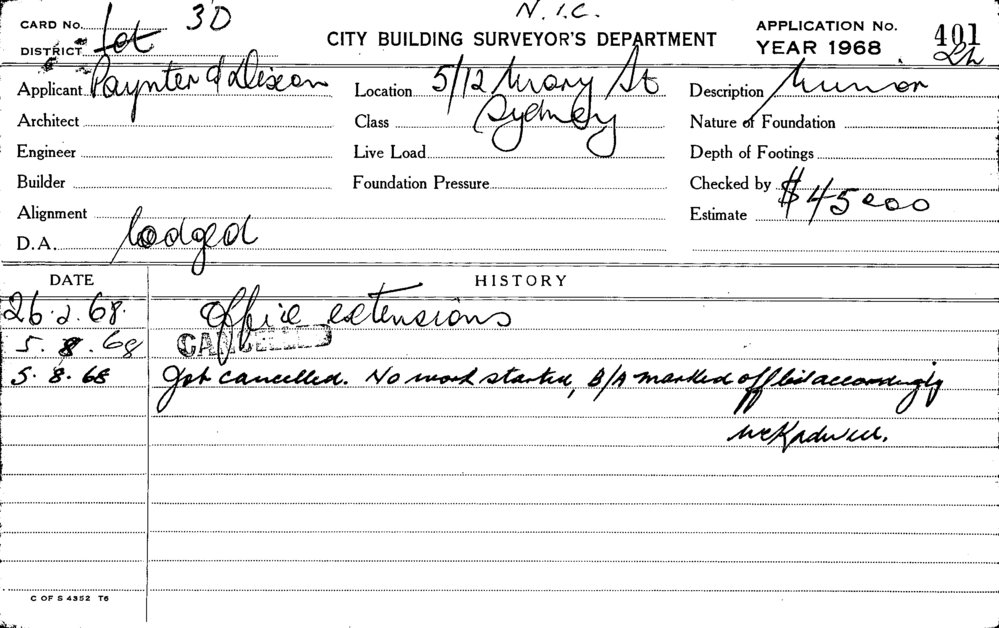 N.I.C.
CARD No. 3D
CITY BUILDING SURVEYOR'S DEPARTMENT
APPLICATION No. 401
YEAR 1968
DISTRICT
Applicant Paynter & Dixon
Location 5/12 Mary St
Sydney
Description Minor
Architect
Class
Nature of Foundation
Engineer
Live Load
Depth of Footings
Builder
Foundation Pressure
Checked by
Alignment
Estimate $45000
D.A. lodged
DATE HISTORY
26.2.68. Office extensions
5.8.68 CANCELLED
5.8.68 Job cancelled. No work started, B/A marked off list accordingly
C OF S 4352 T6